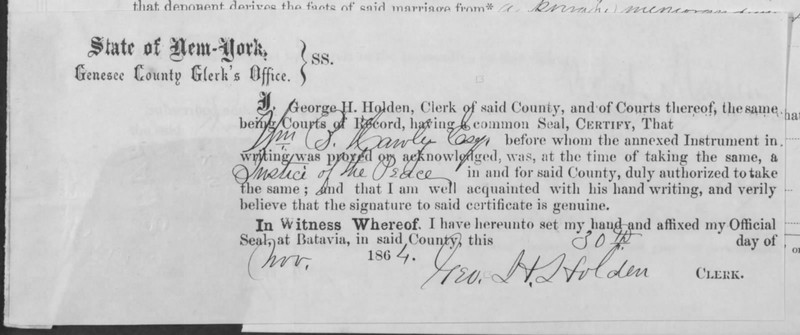 that deponent derives the facts of said marriage from* a
State of New-York,
Genesee County Clerk's Office. } SS.
I, George H. Holden, Clerk of said County, and of Courts thereof, the same
being Courts of Record, having a common Seal, CERTIFY, That
Wm S. Hawley Esq. before whom the annexed Instrument in
writing was proved or acknowledged, was, at the time of taking the same, a
Justice of the Peace in and for said County, duly authorized to take
the same; and that I am well acquainted with his hand writing, and verily
believe that the signature to said certificate is genuine.
In Witness Whereof. I have hereunto set my hand and affixed my Official
Seal, at Batavia, in said County, this 30th day of
Nov. 1864. Geo. H. Holden CLERK.